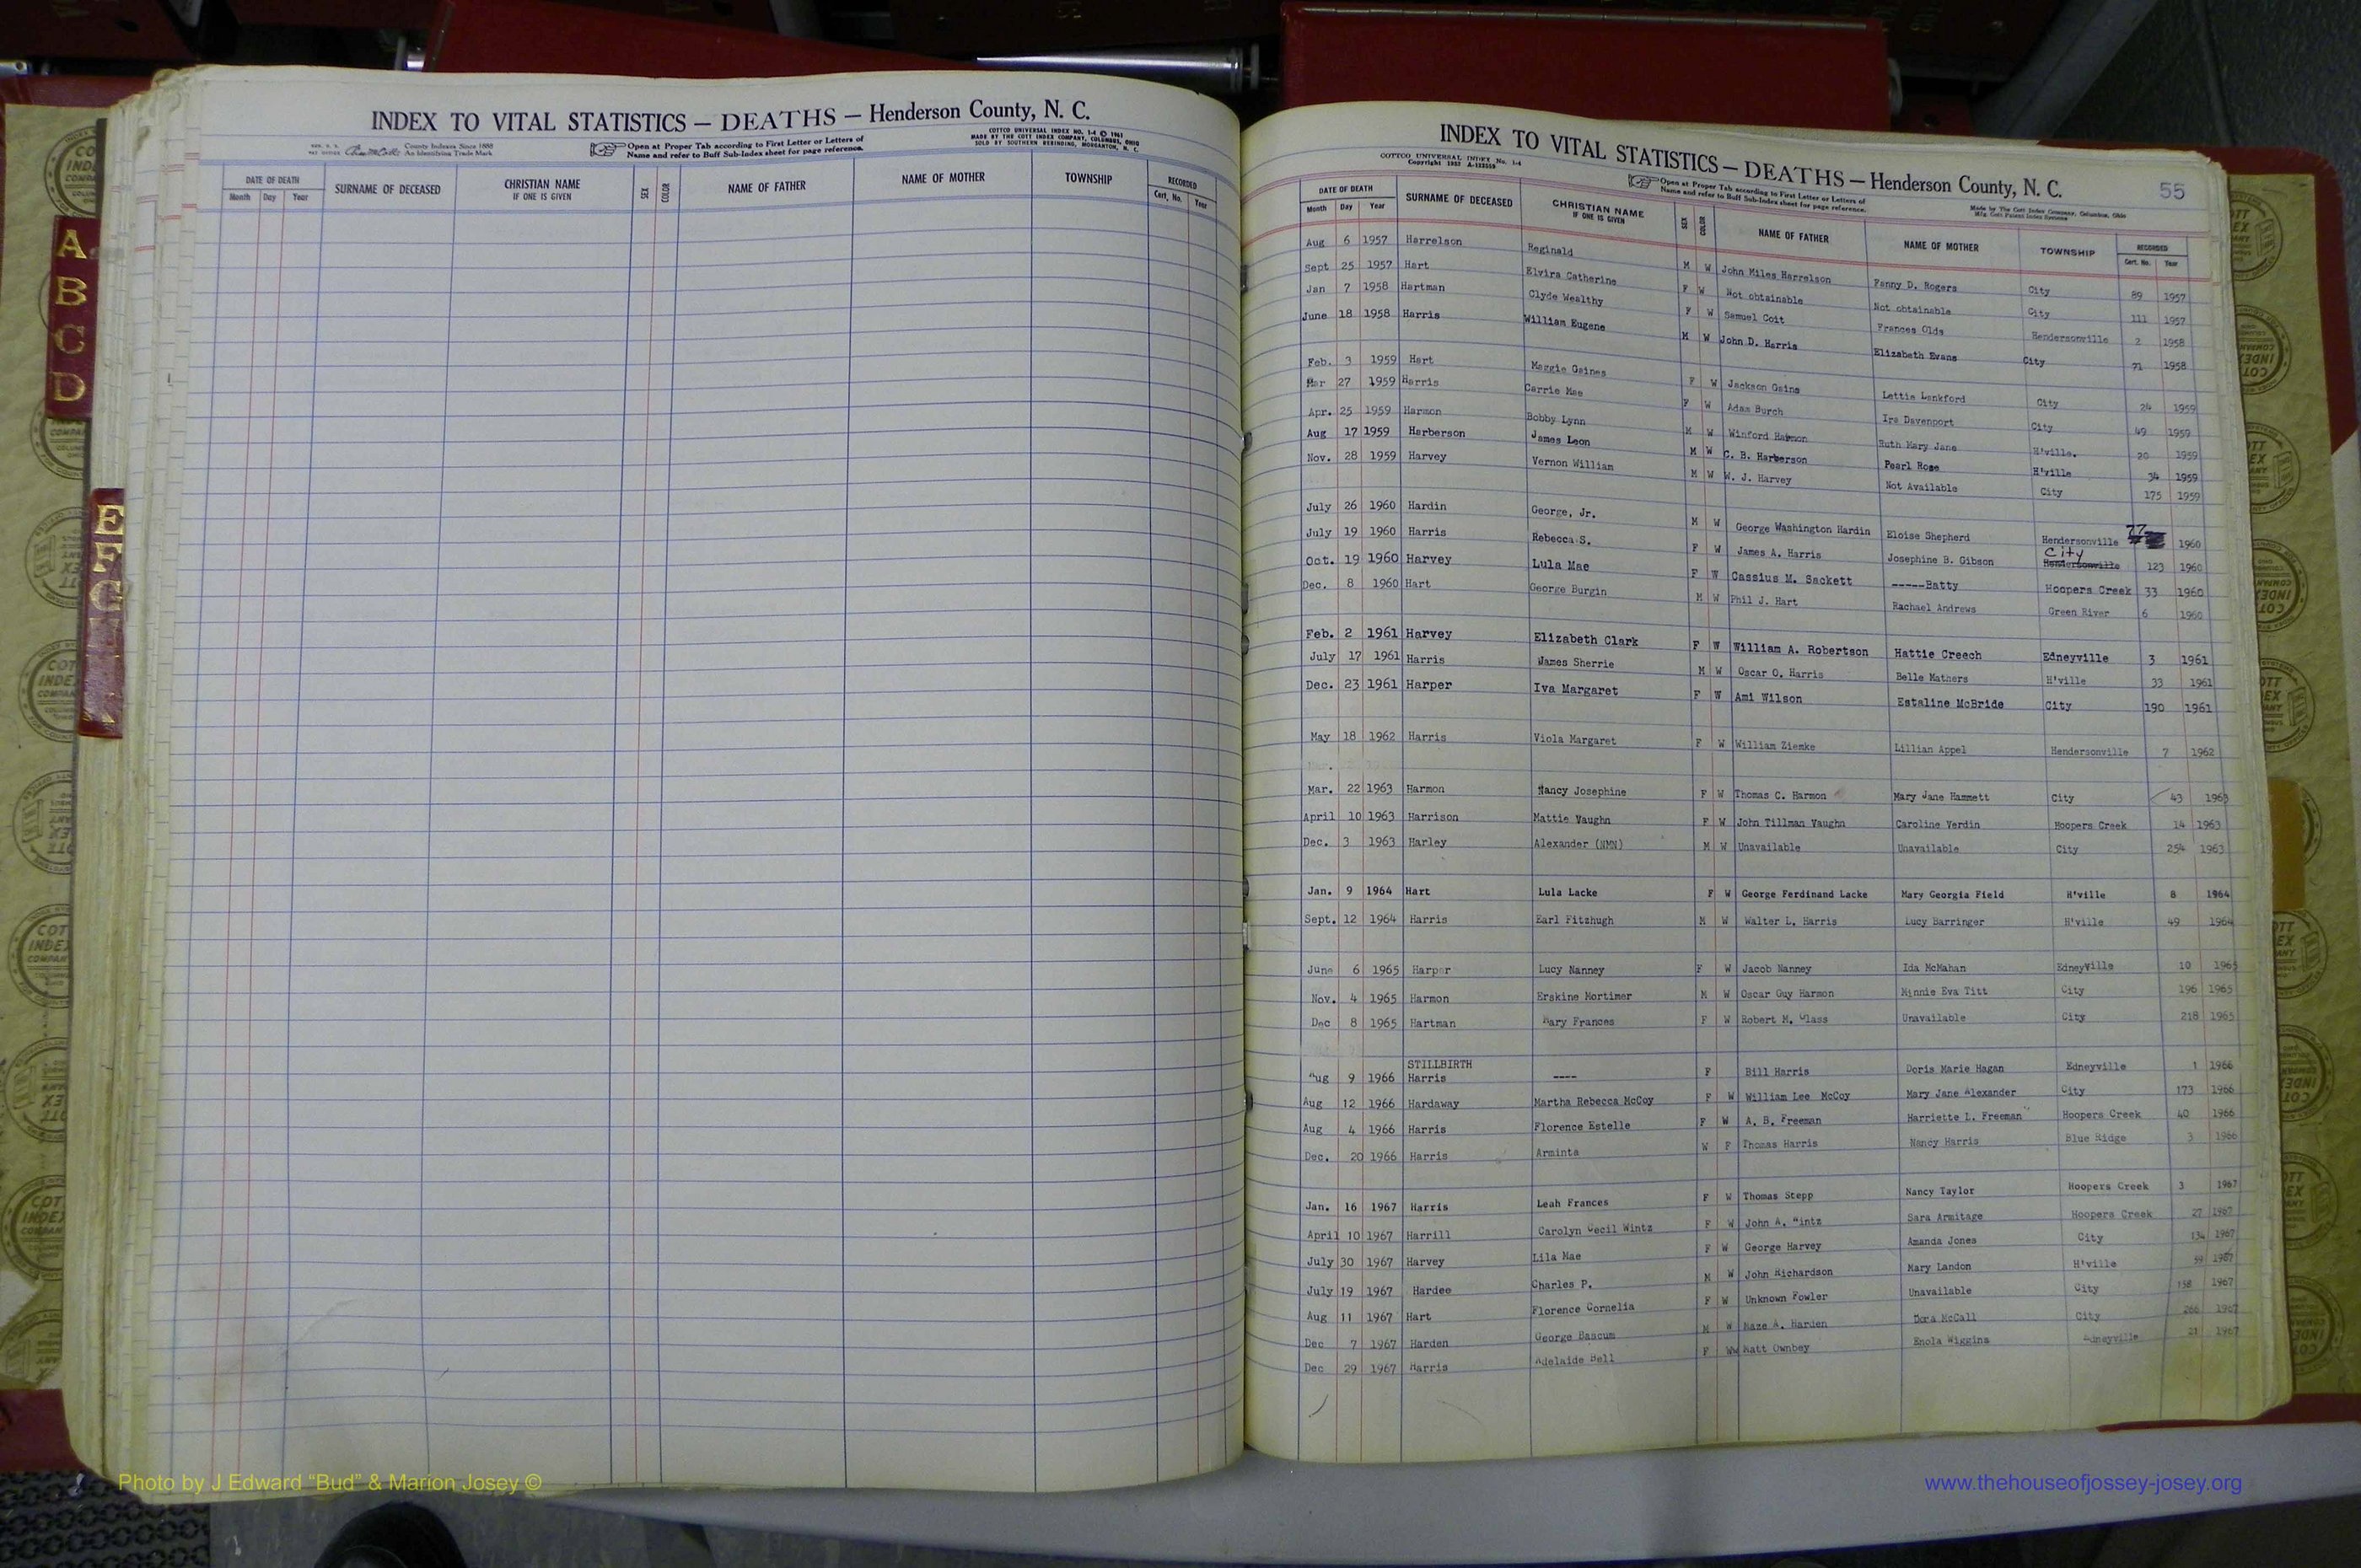 INDEX TO VITAL STATISTICS — DEATHS — Henderson County, N. C.
County Indexes Since 1888
An Identifying Trade Mark
Open at Proper Tab according to First Letter or Letters of
Name and refer to Buff Sub-Index sheet for page reference.
COTTCO UNIVERSAL INDEX NO. 1-4 © 1961
MADE BY THE COTT INDEX COMPANY, COLUMBUS, OHIO
SOLD BY SOUTHERN REBINDING, MORGANTON, N. C.
DATE OF DEATH SURNAME OF DECEASED CHRISTIAN NAME IF ONE IS GIVEN SEX COLOR NAME OF FATHER NAME OF MOTHER TOWNSHIP RECORDED
Month Day Year Cert. No. Year
A
B
C
D
E
F
G
INDEX TO VITAL STATISTICS — DEATHS — Henderson County, N. C.
55
COTTCO UNIVERSAL INDEX No. 1-4
Open at Proper Tab according to First Letter or Letters of
Name and refer to Buff Sub-Index sheet for page reference.
Made by The Cott Index Company, Columbus, Ohio
DATE OF DEATH SURNAME OF DECEASED CHRISTIAN NAME IF ONE IS GIVEN SEX COLOR NAME OF FATHER NAME OF MOTHER TOWNSHIP RECORDED
Month Day Year Cert. No. Year
Aug 6 1957 Harrelson Reginald M W John Miles Harrelson Fanny D. Rogers City 89 1957
Sept 25 1957 Hart Elvira Catherine F W Not obtainable Not obtainable City 111 1957
Jan 7 1958 Hartman Clyde Wealthy F W Samuel Coit Frances Olds Hendersonville 2 1958
June 18 1958 Harris William Eugene M W John D. Harris Elizabeth Evans City 71 1958
Feb. 3 1959 Hart Maggie Gaines F W Jackson Gains Lettie Lankford City 24 1959
Mar 27 1959 Harris Carrie Mae F W Adam Burch Ira Davenport City 49 1959
Apr. 25 1959 Harmon Bobby Lynn M W Winford Harmon Ruth Mary Jane H'ville. 20 1959
Aug 17 1959 Harberson James Leon M W C. B. Harberson Pearl Rose H'ville 34 1959
Nov. 28 1959 Harvey Vernon William M W W. J. Harvey Not Available City 175 1959
July 26 1960 Hardin George, Jr. M W George Washington Hardin Eloise Shepherd Hendersonville 77 1960
July 19 1960 Harris Rebecca S. F W James A. Harris Josephine B. Gibson City Hendersonville 123 1960
Oct. 19 1960 Harvey Lula Mae F W Cassius M. Sackett -----Batty Hoopers Creek 33 1960
Dec. 8 1960 Hart George Burgin M W Phil J. Hart Rachael Andrews Green River 6 1960
Feb. 2 1961 Harvey Elizabeth Clark F W William A. Robertson Hattie Creech Edneyville 3 1961
July 17 1961 Harris James Sherrie M W Oscar O. Harris Belle Mathers H'ville 33 1961
Dec. 23 1961 Harper Iva Margaret F W Ami Wilson Estaline McBride City 190 1961
May 18 1962 Harris Viola Margaret F W William Ziemke Lillian Appel Hendersonville 7 1962
Mar. 22 1963 Harmon Nancy Josephine F W Thomas C. Harmon Mary Jane Hammett City 43 1963
April 10 1963 Harrison Mattie Vaughn F W John Tillman Vaughn Caroline Verdin Hoopers Creek 14 1963
Dec. 3 1963 Harley Alexander (NMN) M W Unavailable Unavailable City 254 1963
Jan. 9 1964 Hart Lula Lacke F W George Ferdinand Lacke Mary Georgia Field H'ville 8 1964
Sept. 12 1964 Harris Earl Fitzhugh M W Walter L. Harris Lucy Barringer H'ville 49 1964
June 6 1965 Harper Lucy Nanney F W Jacob Nanney Ida McMahan Edneyville 10 1965
Nov. 4 1965 Harmon Erskine Mortimer M W Oscar Guy Harmon Minnie Eva Titt City 196 1965
Dec 8 1965 Hartman Mary Frances F W Robert M. Glass Unavailable City 218 1965
STILLBIRTH
Aug 9 1966 Harris ---- F Bill Harris Doris Marie Hagan Edneyville 1 1966
Aug 12 1966 Hardaway Martha Rebecca McCoy F W William Lee McCoy Mary Jane Alexander City 173 1966
Aug 4 1966 Harris Florence Estelle F W A. B. Freeman Harriette L. Freeman Hoopers Creek 40 1966
Dec. 20 1966 Harris Arminta W F Thomas Harris Nancy Harris Blue Ridge 3 1966
Jan. 16 1967 Harris Leah Frances F W Thomas Stepp Nancy Taylor Hoopers Creek 3 1967
April 10 1967 Harrill Carolyn Cecil Wintz F W John A. Wintz Sara Armitage Hoopers Creek 27 1967
July 30 1967 Harvey Lila Mae F W George Harvey Amanda Jones City 134 1967
July 19 1967 Hardee Charles P. M W John Richardson Mary Landon H'ville 59 1967
Aug 11 1967 Hart Florence Cornelia F W Unknown Fowler Unavailable City 158 1967
Dec 7 1967 Harden George Bascum M W Maze A. Harden Dora McCall City 266 1967
Dec 29 1967 Harris Adelaide Bell F WW Matt Ownbey Enola Wiggins Edneyville 21 1967
Photo by J Edward “Bud” & Marion Josey ©
www.thehouseofjossey-josey.org